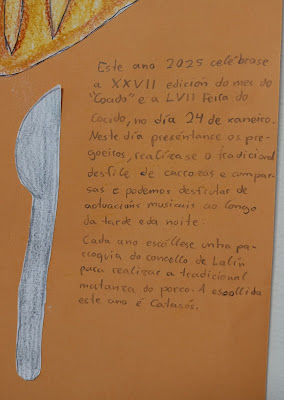 Este ano 2025 celébrase
a XXVII edición do mes do
"Cocido" e a LVII Feira do
Cocido, no día 24 de xaneiro.
Neste día preséntanse os pre-
goeiros, realízase o tradicional
desfile de carrozas e compar-
sas e podemos disfrutar de
actuacións musicais ao longo
da tarde e da noite.
Cada ano escóllese unha pa-
rroquia do concello de Lalín
para realizar a tradicional
matanza do porco. A escollida
este ano é Catasós.